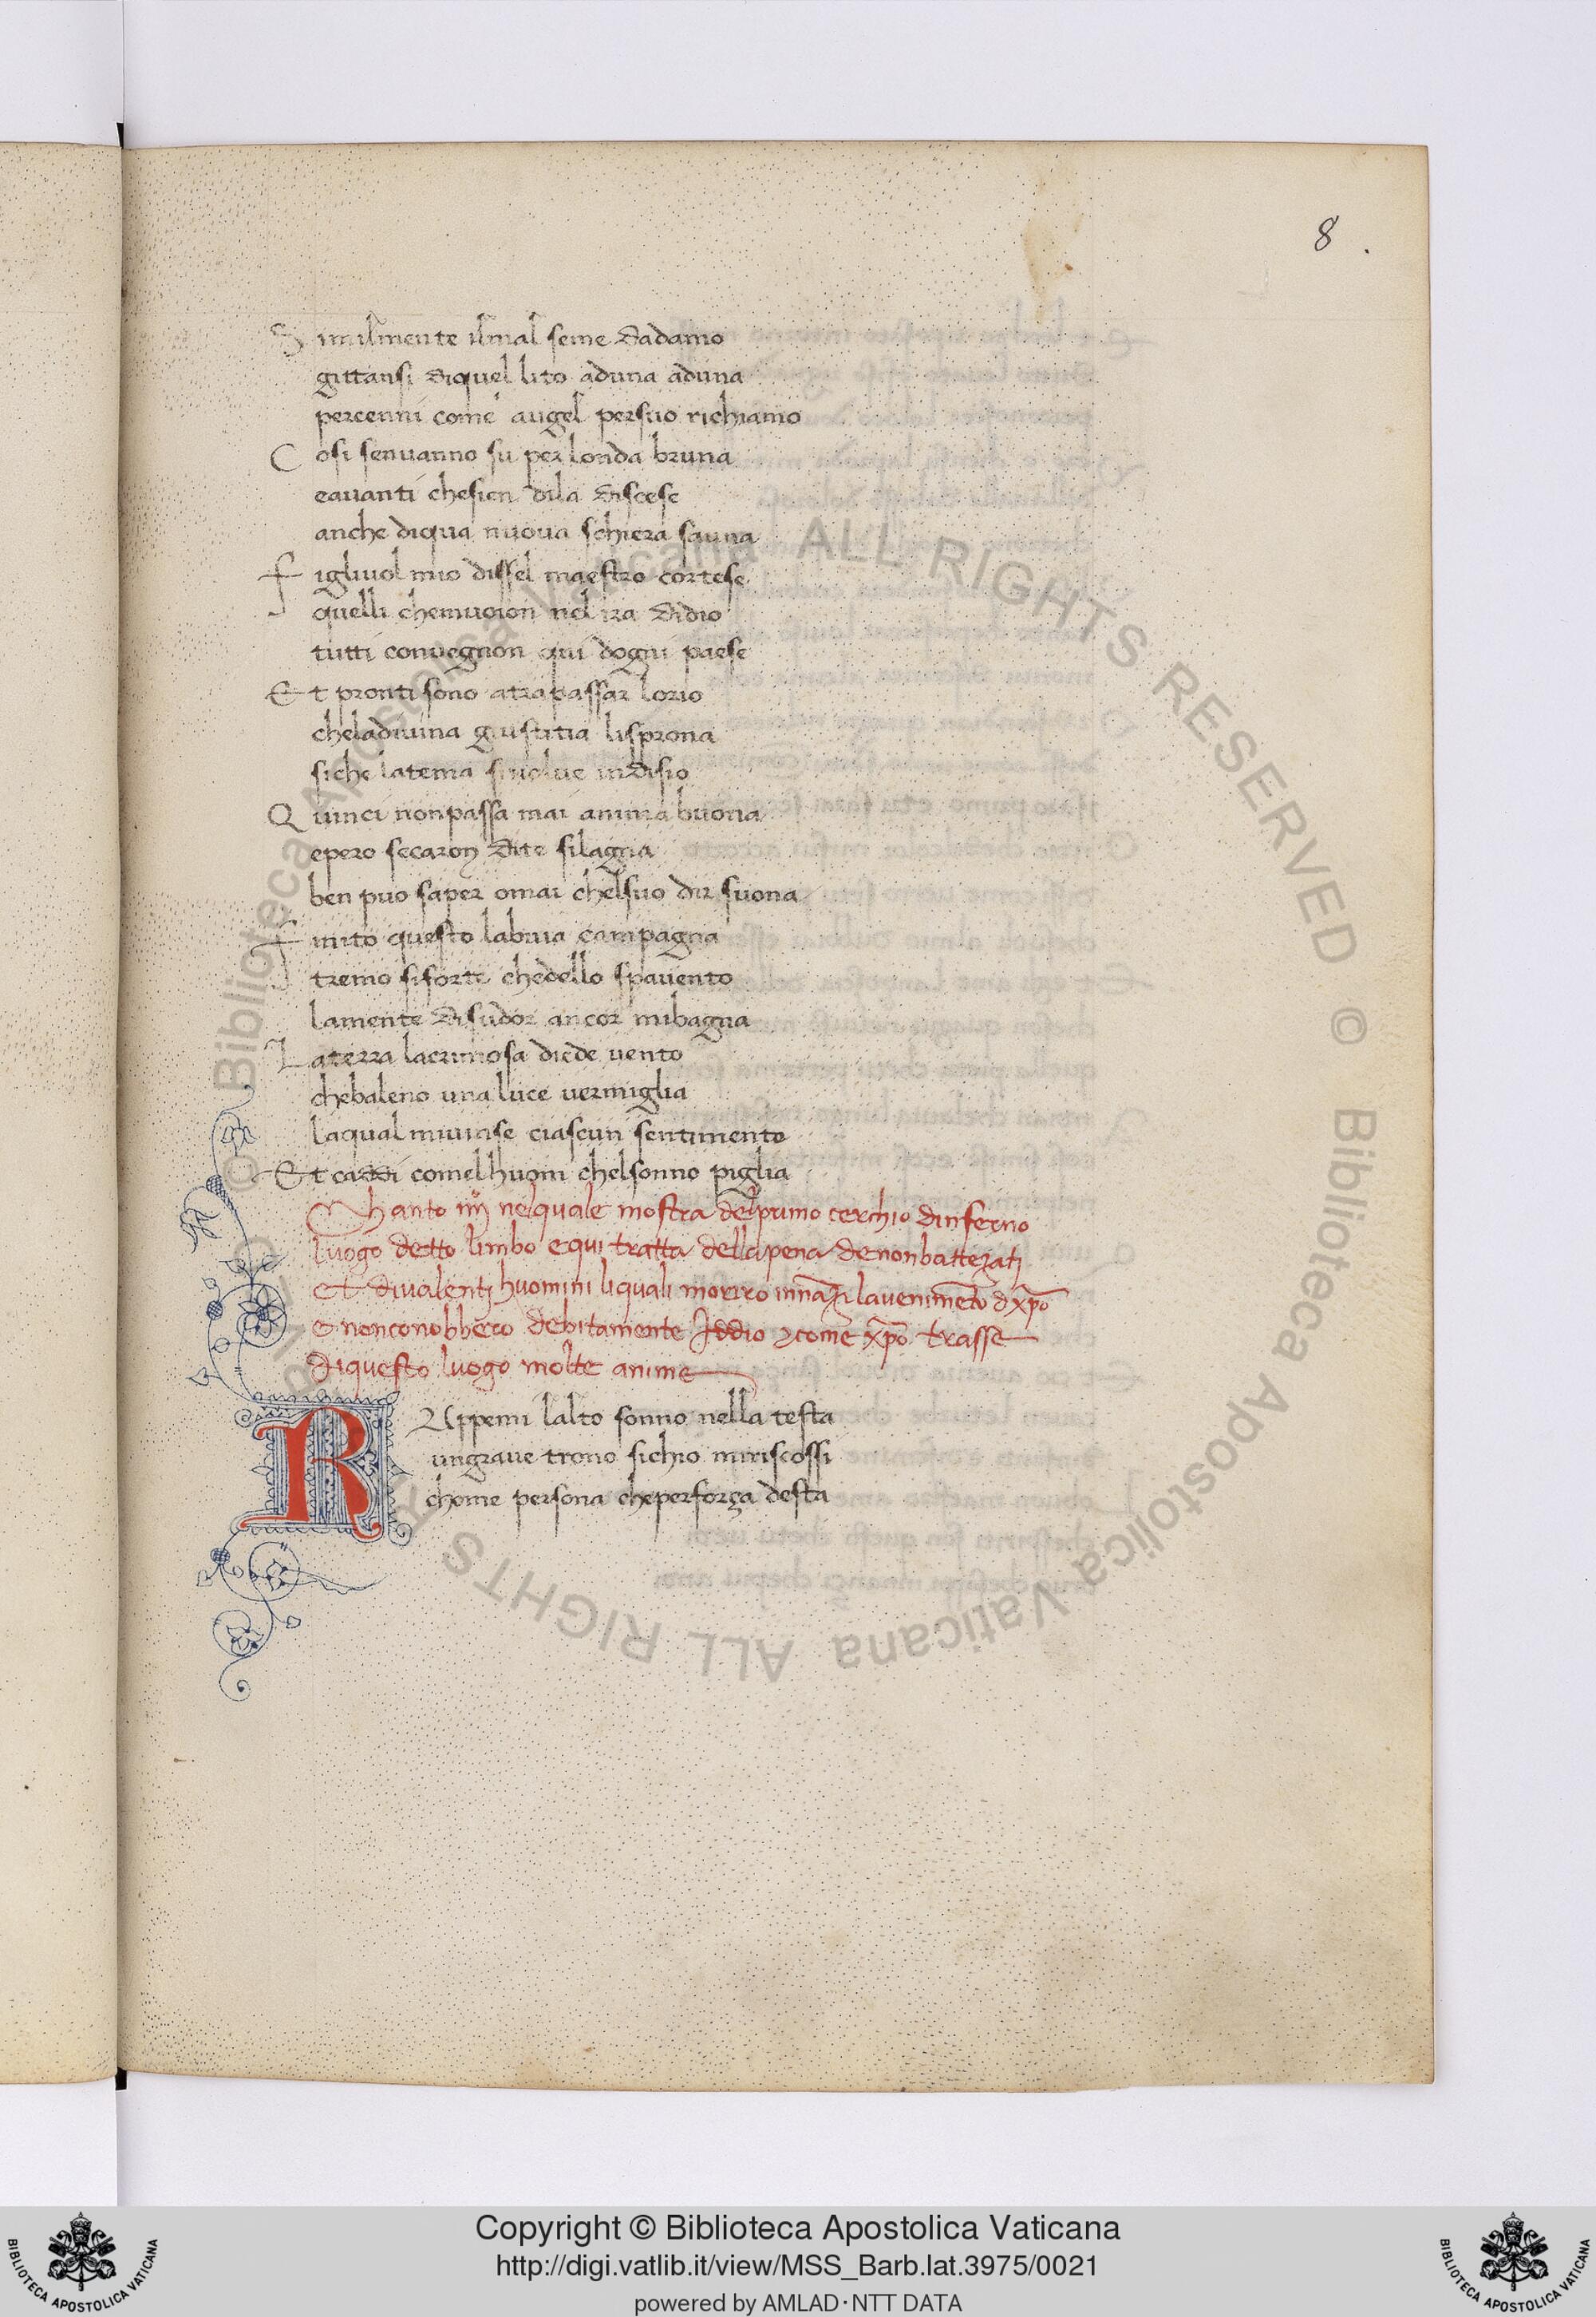 8 .
Similmente ilmal seme dadamo
gittansi diquel lito aduna aduna
percenni come augel persuo richiamo
Cosi senuanno su per londa bruna
eauanti chesien dila discese
anche diqua nuoua schiera sauna
figliuol mio dissel maestro cortese
quelli chemuoion nel ira didio
tutti conuegnon qui dogni paese
Et pronti sono atrapassar lorio
cheladiuina giustitia lisprona
siche latema siuolue indisio
Quinci nonpassa mai anima buona
epero secaron dite silagna
ben puo saper omai chelsuo dir suona
finito questo labuia campagna
tremo siforte chedello spauento
lamente disudor ancor mibagna
Laterra lacrimosa diede uento
chebaleno una luce uermiglia
laqual miuinse ciascun sentimento
Et caddi comelhuom chelsonno piglia
Chanto iiij nelquale mostra delprimo cerchio dinferno
luogo detto limbo equi tratta dellapena denonbattezatj
et diualentj huomini liquali moriro innāzi lauenimēto d xp̄o
& nonconobbero debitamente Iddio & come xp̄o trasse
diquesto luogo molte anime
RUppemi lalto sonno nella testa
ungraue trono sichio miriscossi
chome persona cheperforça desta
© Biblioteca Apostolica Vaticana ALL RIGHTS RESERVED © Biblioteca Apostolica Vaticana ALL RIGHTS
Copyright © Biblioteca Apostolica Vaticana
http://digi.vatlib.it/view/MSS_Barb.lat.3975/0021
powered by AMLAD·NTT DATA
BIBLIOTECA APOSTOLICA VATICANA
BIBLIOTECA APOSTOLICA VATICANA